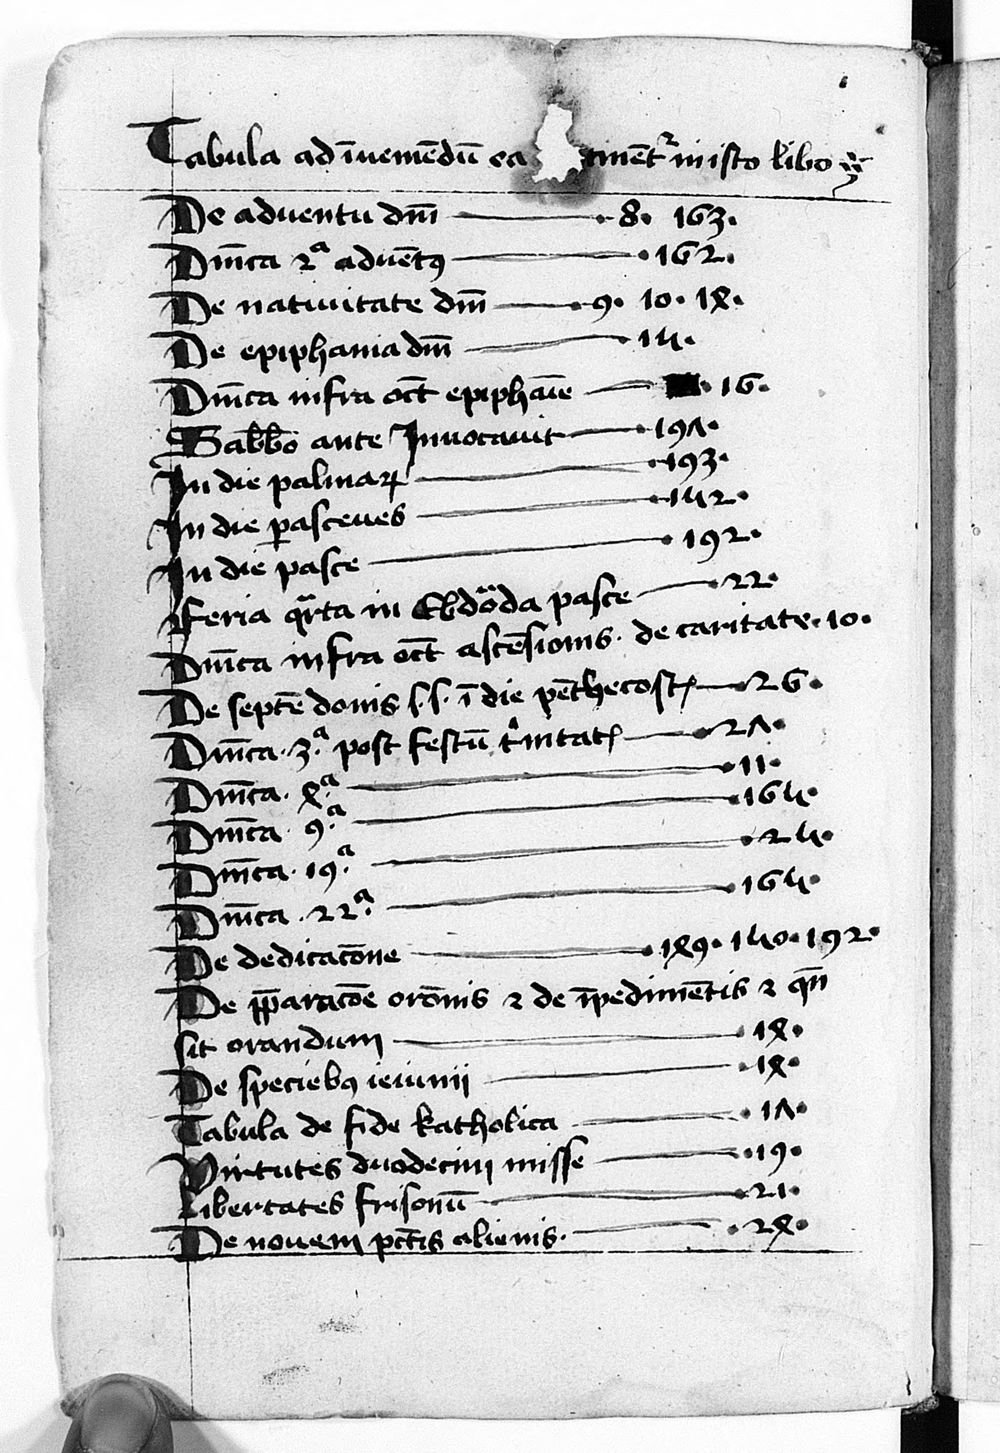 Tabula ad īveniēdū ea tinēt᷑ in isto libo
De aduentu dn̄i 8. 163.
Dn̄ica 2ᵃ aduētꝰ 162.
De natiuitate dn̄i 9. 10. 14.
De epiphania dn̄i 15.
Dn̄ica infra oct̄ epiphāie 16.
Sabb̄o ante Inuocauit 197.
In die palmaꝝ 193.
In die ꝑasceues 152.
In die pasce 192.
Feria qᵃrta in Ebdōᵃda pasce 22.
Dn̄ica infra oct̄ ascēsionis. de caritate. 10.
De septē donis s.s. ī die pēthecostꝭ 26.
Dn̄ica. 3ᵃ. post festū tⁱnitatꝭ 27.
Dn̄ica. 4ᵃ. 11.
Dn̄ica. 9ᵃ. 165.
Dn̄ica. 19ᵃ. 25.
Dn̄ica. 22ᵃ. 165.
De dedicacōne 149. 150. 192.
De p̄paracōe orōnis ⁊ de īpedimētis ⁊ qn̄
sit orandum 14.
De speciebꝰ ieiunii 14.
Tabula de fide katholica 17.
Virtutes duodecim misse 19.
Libertates frisonū 21.
De nouem pct̄is alienis. 24.